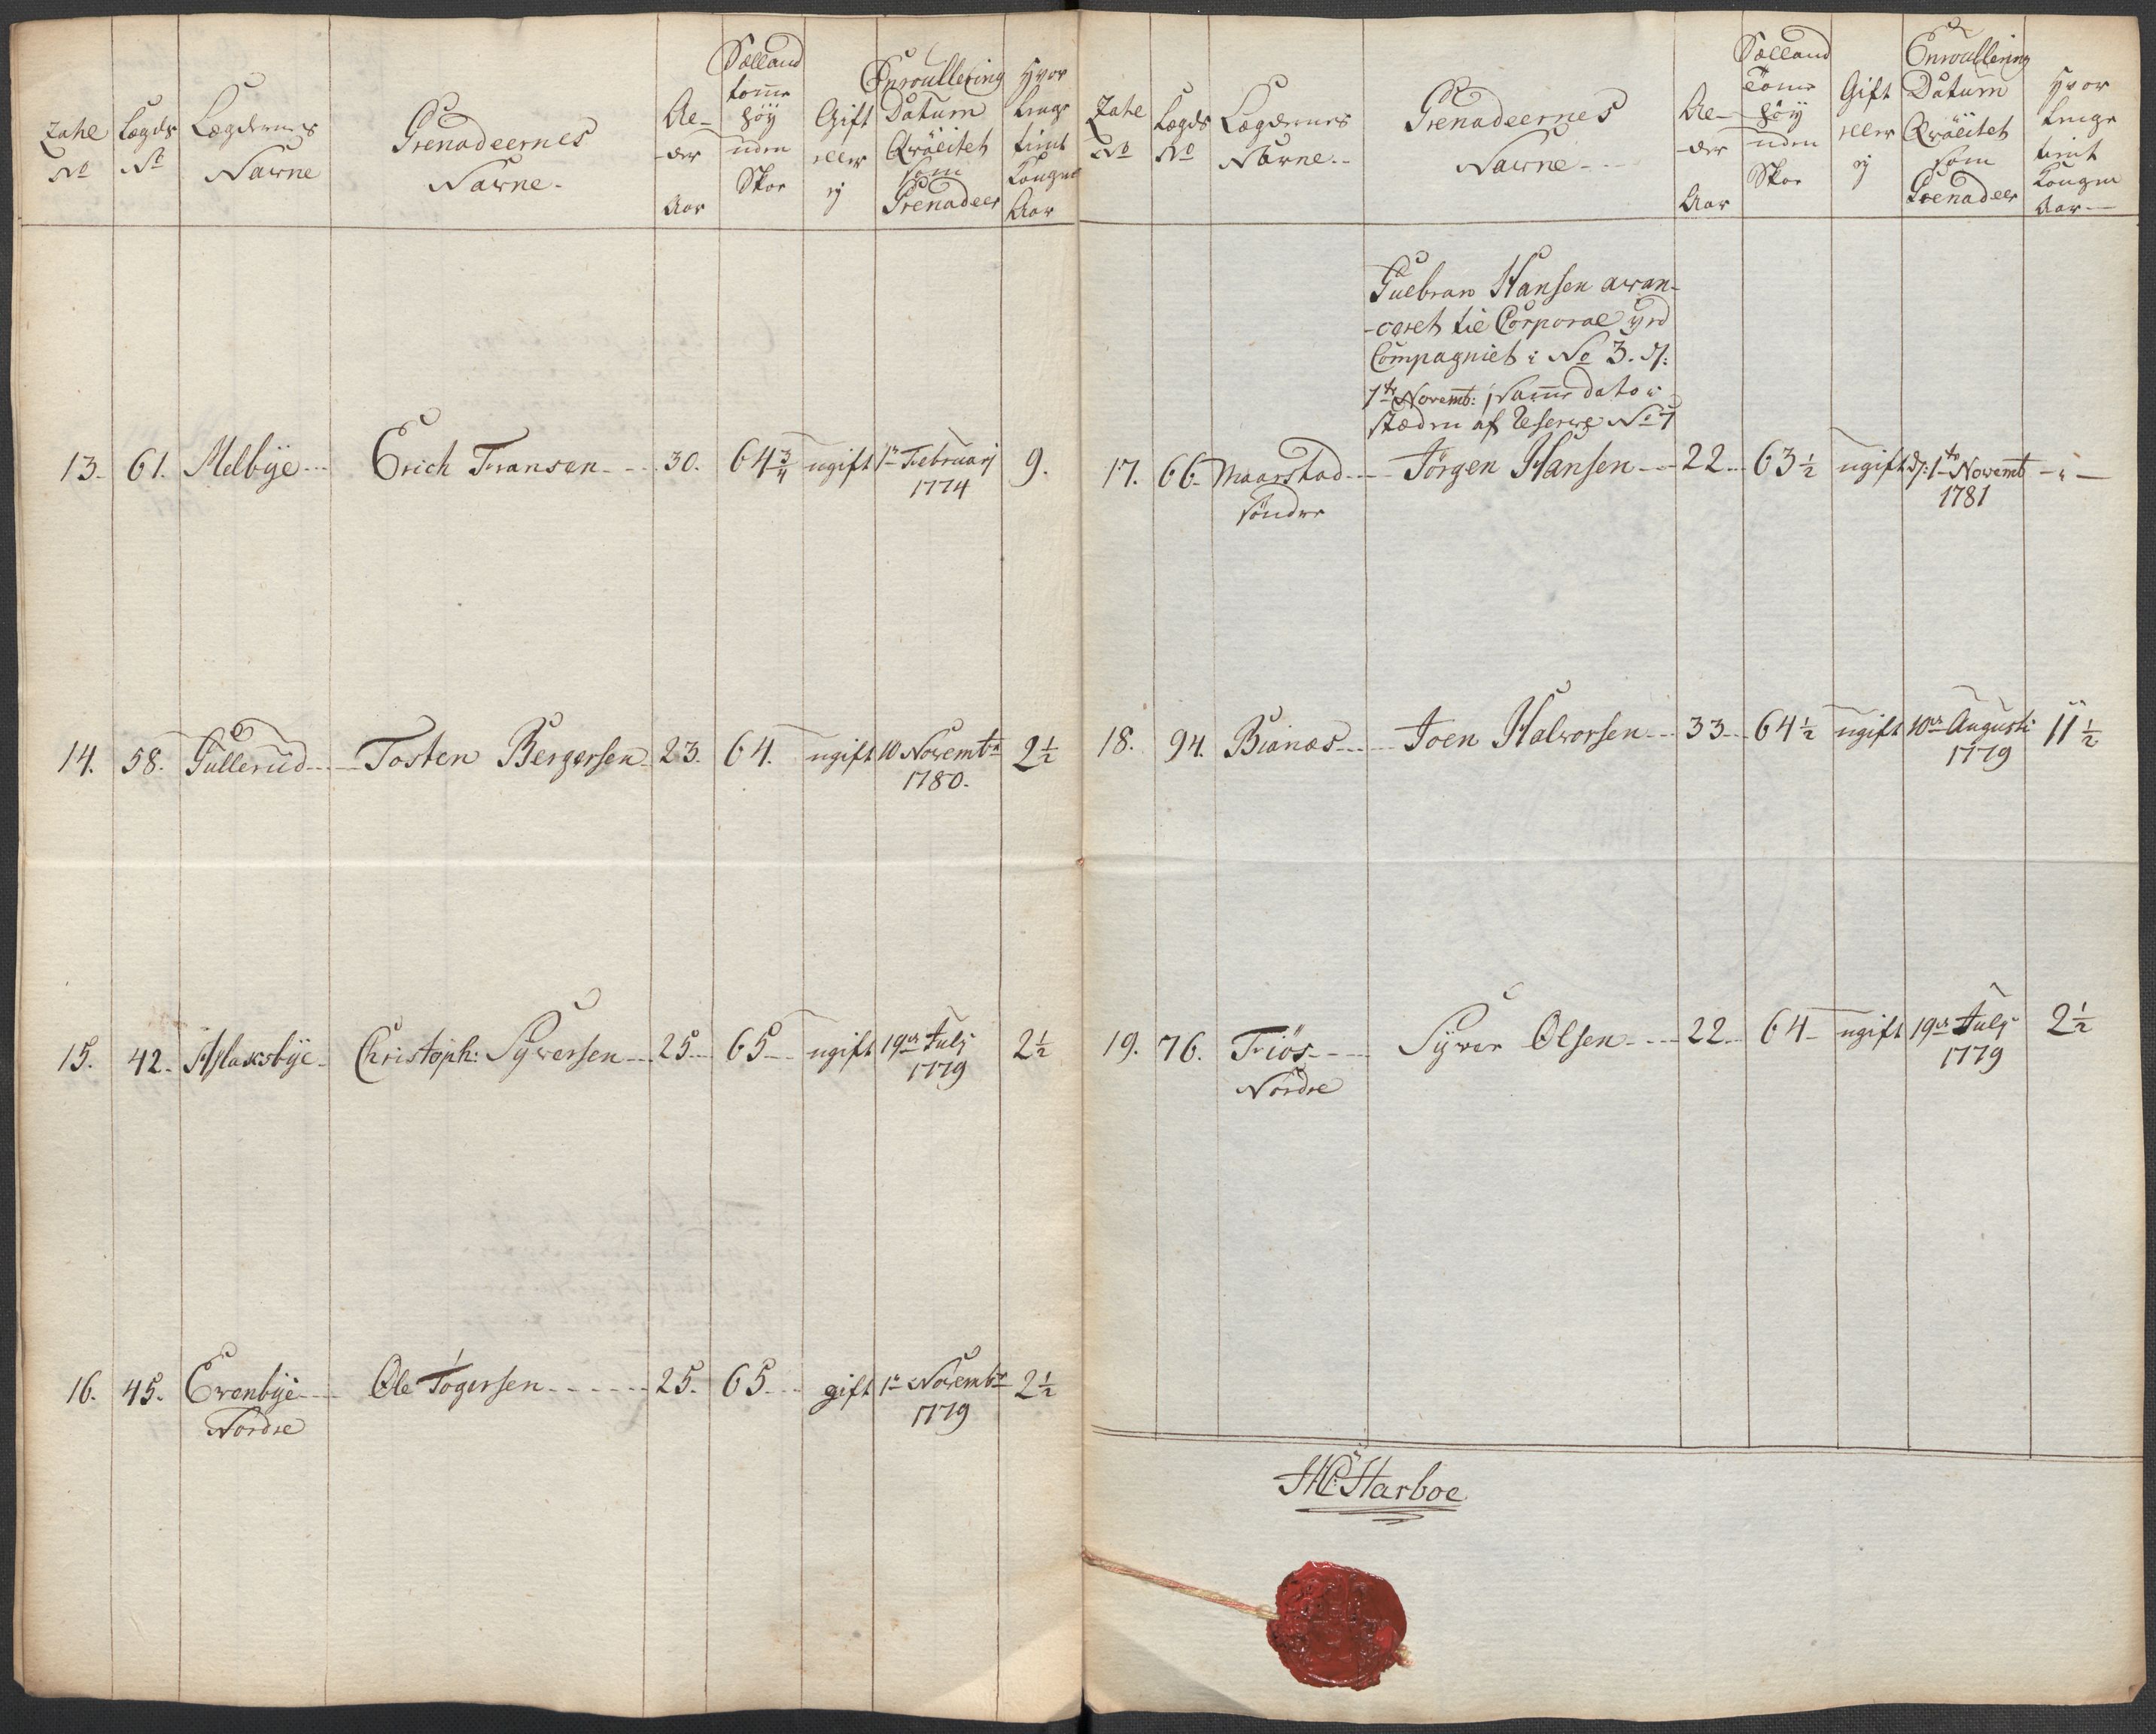 Zahl No
Lægds No
Lægdernes Navne
Grenadeernes Navne
Al-der Aar
Sælland tomme høy uden Skoe
Gift eller ej
Enroullering Datum Qvalitet som Grenadeer
Hvor længe tient Kongen Aar
13. 61. Melbÿe Erich Fransen 30. 64 3/4 ugift 1te Februarj 9.
1774
14. 58. Gullerud Tosten Bergersen 23. 64. ugift 10 Novembr 2 1/2
1780.
15. 42. Aslaksbÿe Christoph: Sÿversen 25 65 ugift 19de Julj 2 1/2
1779
16. 45. Evenbÿe Ole Togersen 25. 65 gift 1te Novembr 2 1/2
Nordre 1779
Zahl No
Lægds No
Lægdernes Navne
Grenadeernes Navne
Al-der Aar
Sælland tomme høÿ uden Skoe
Gift eller ej
Enroullering Datum Qvalitet som Grenadeer
Hvor længe tient Kongen Aar
Gulbran Hansen avan-
-ceret til Corporal ved
Compagniet i No 3. d:
1te Novemb: j samme dato i
stæden af Reserve No 7
17. 66. Maarstad Jörgen Hansen 22 63 1/2 ugift d: 1te Novemb
söndre 1781
18. 94. Bianæs Joen Halvorsen 33 64 1/2 ugift 10de Augusti 11 1/2
1779
19. 76. Friös Sÿver Olsen 22 64 ugift 19de Julj 2 1/2
Nordre 1779
HC Harboe